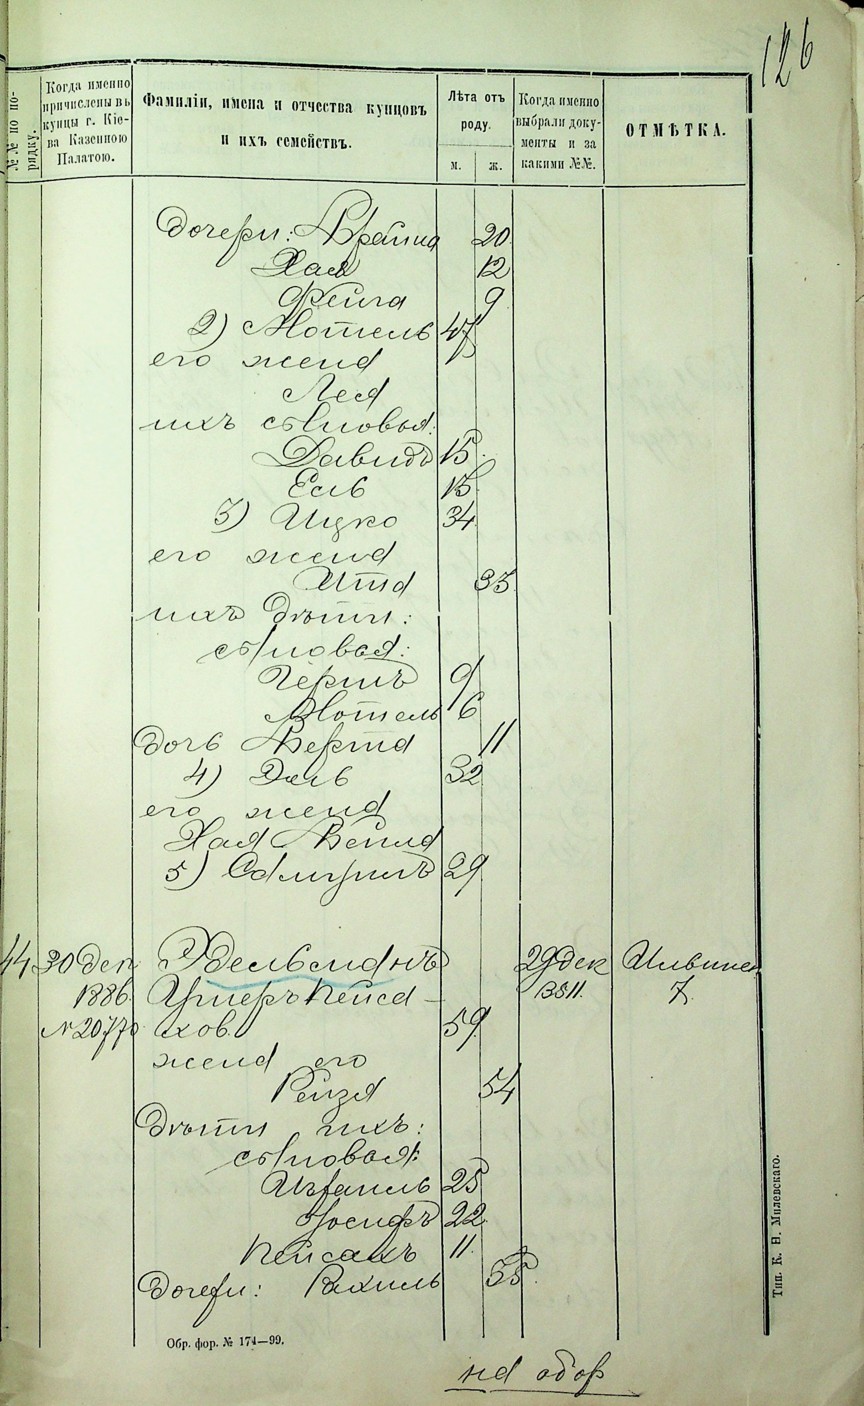 126
№№ по по-
рядку.
Когда именно
причислены въ
купцы г. Кіе-
ва Казенною
Палатою.
Фамиліи, имена и отчества купцовъ
и ихъ семействъ.
Лѣта отъ
роду.
м. ж.
Когда именно
выбрали доку-
менты и за
какими №№.
ОТМѢТКА.
дочери: Браина 20
Хая 12
Фейга 9
2) Мотель 47
его жена
Лея
ихъ сыновья:
Давидъ 15
Ель 15
3) Ицко 34
его жена
Ита 35
ихъ дѣти:
сыновья:
Гершъ 9
Мотель 6
дочь Берта 11
4) Эль 32
его жена
Хая Бейла
5) 29
44 30 Дек Эдельманъ 29 дек
1886 Ушеръ Пейса- 13511. 7.
№ 20770 хов. 59
жена его
Рейзя 54
Дѣти ихъ:
сыновья:
Израиль 25
Іосифъ 22
Пейсахъ 11
Дочери: Рахиль 35
Обр. фор. № 174—99.
Тип. К. Н. Милевскаго.
на обор